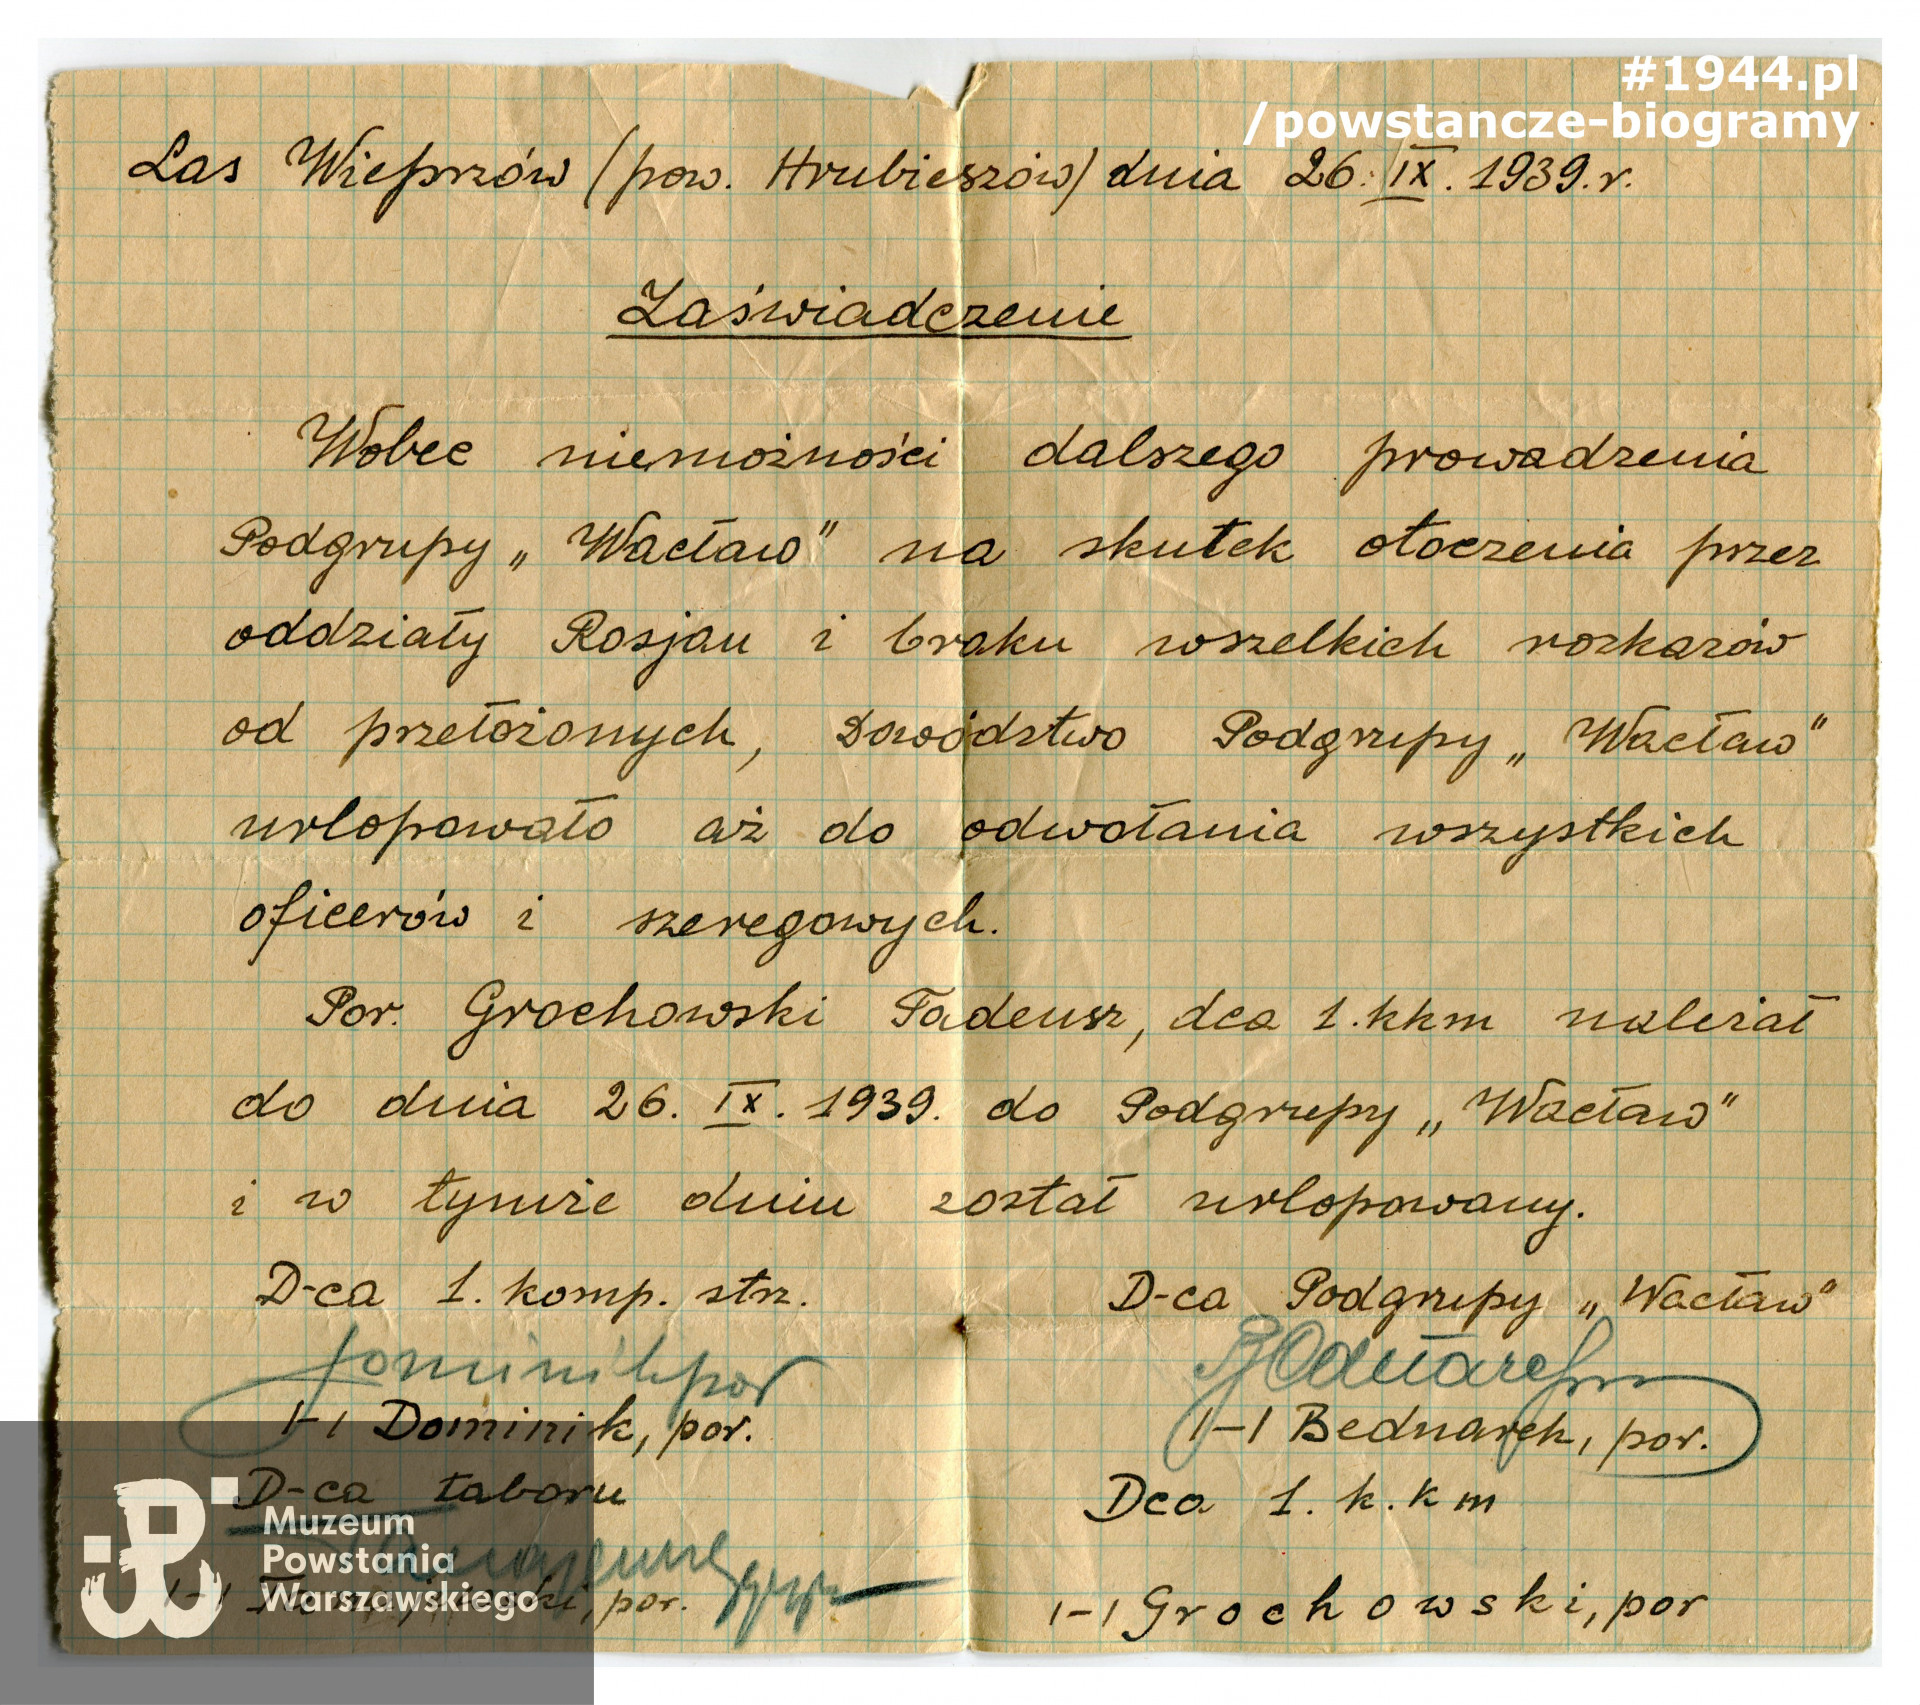 #1944.pl
/powstancze-biogramy
Las Wieprzów (pow. Hrubieszów) dnia 26. IX. 1939. r.
Zaświadczenie
Wobec niemożności dalszego prowadzenia
Podgrupy „Wacław” na skutek otoczenia przez
oddziały Rosjan i braku wszelkich rozkazów
od przełożonych, Dowództwo Podgrupy „Wacław”
urlopowało aż do odwołania wszystkich
oficerów i szeregowych.
Por. Grochowski Tadeusz, dca 1. kkm należał
do dnia 26. IX. 1939. do Podgrupy „Wacław”
i w tymże dniu został urlopowany.
D-ca 1. komp. strz.
Dominik por
1-1 Dominik, por.
D-ca taboru
1-1 por.
D-ca Podgrupy „Wacław”
Bednarek
1-1 Bednarek, por.
Dca 1. k. k m
1-1 Grochowski, por
Muzeum
Powstania
Warszawskiego